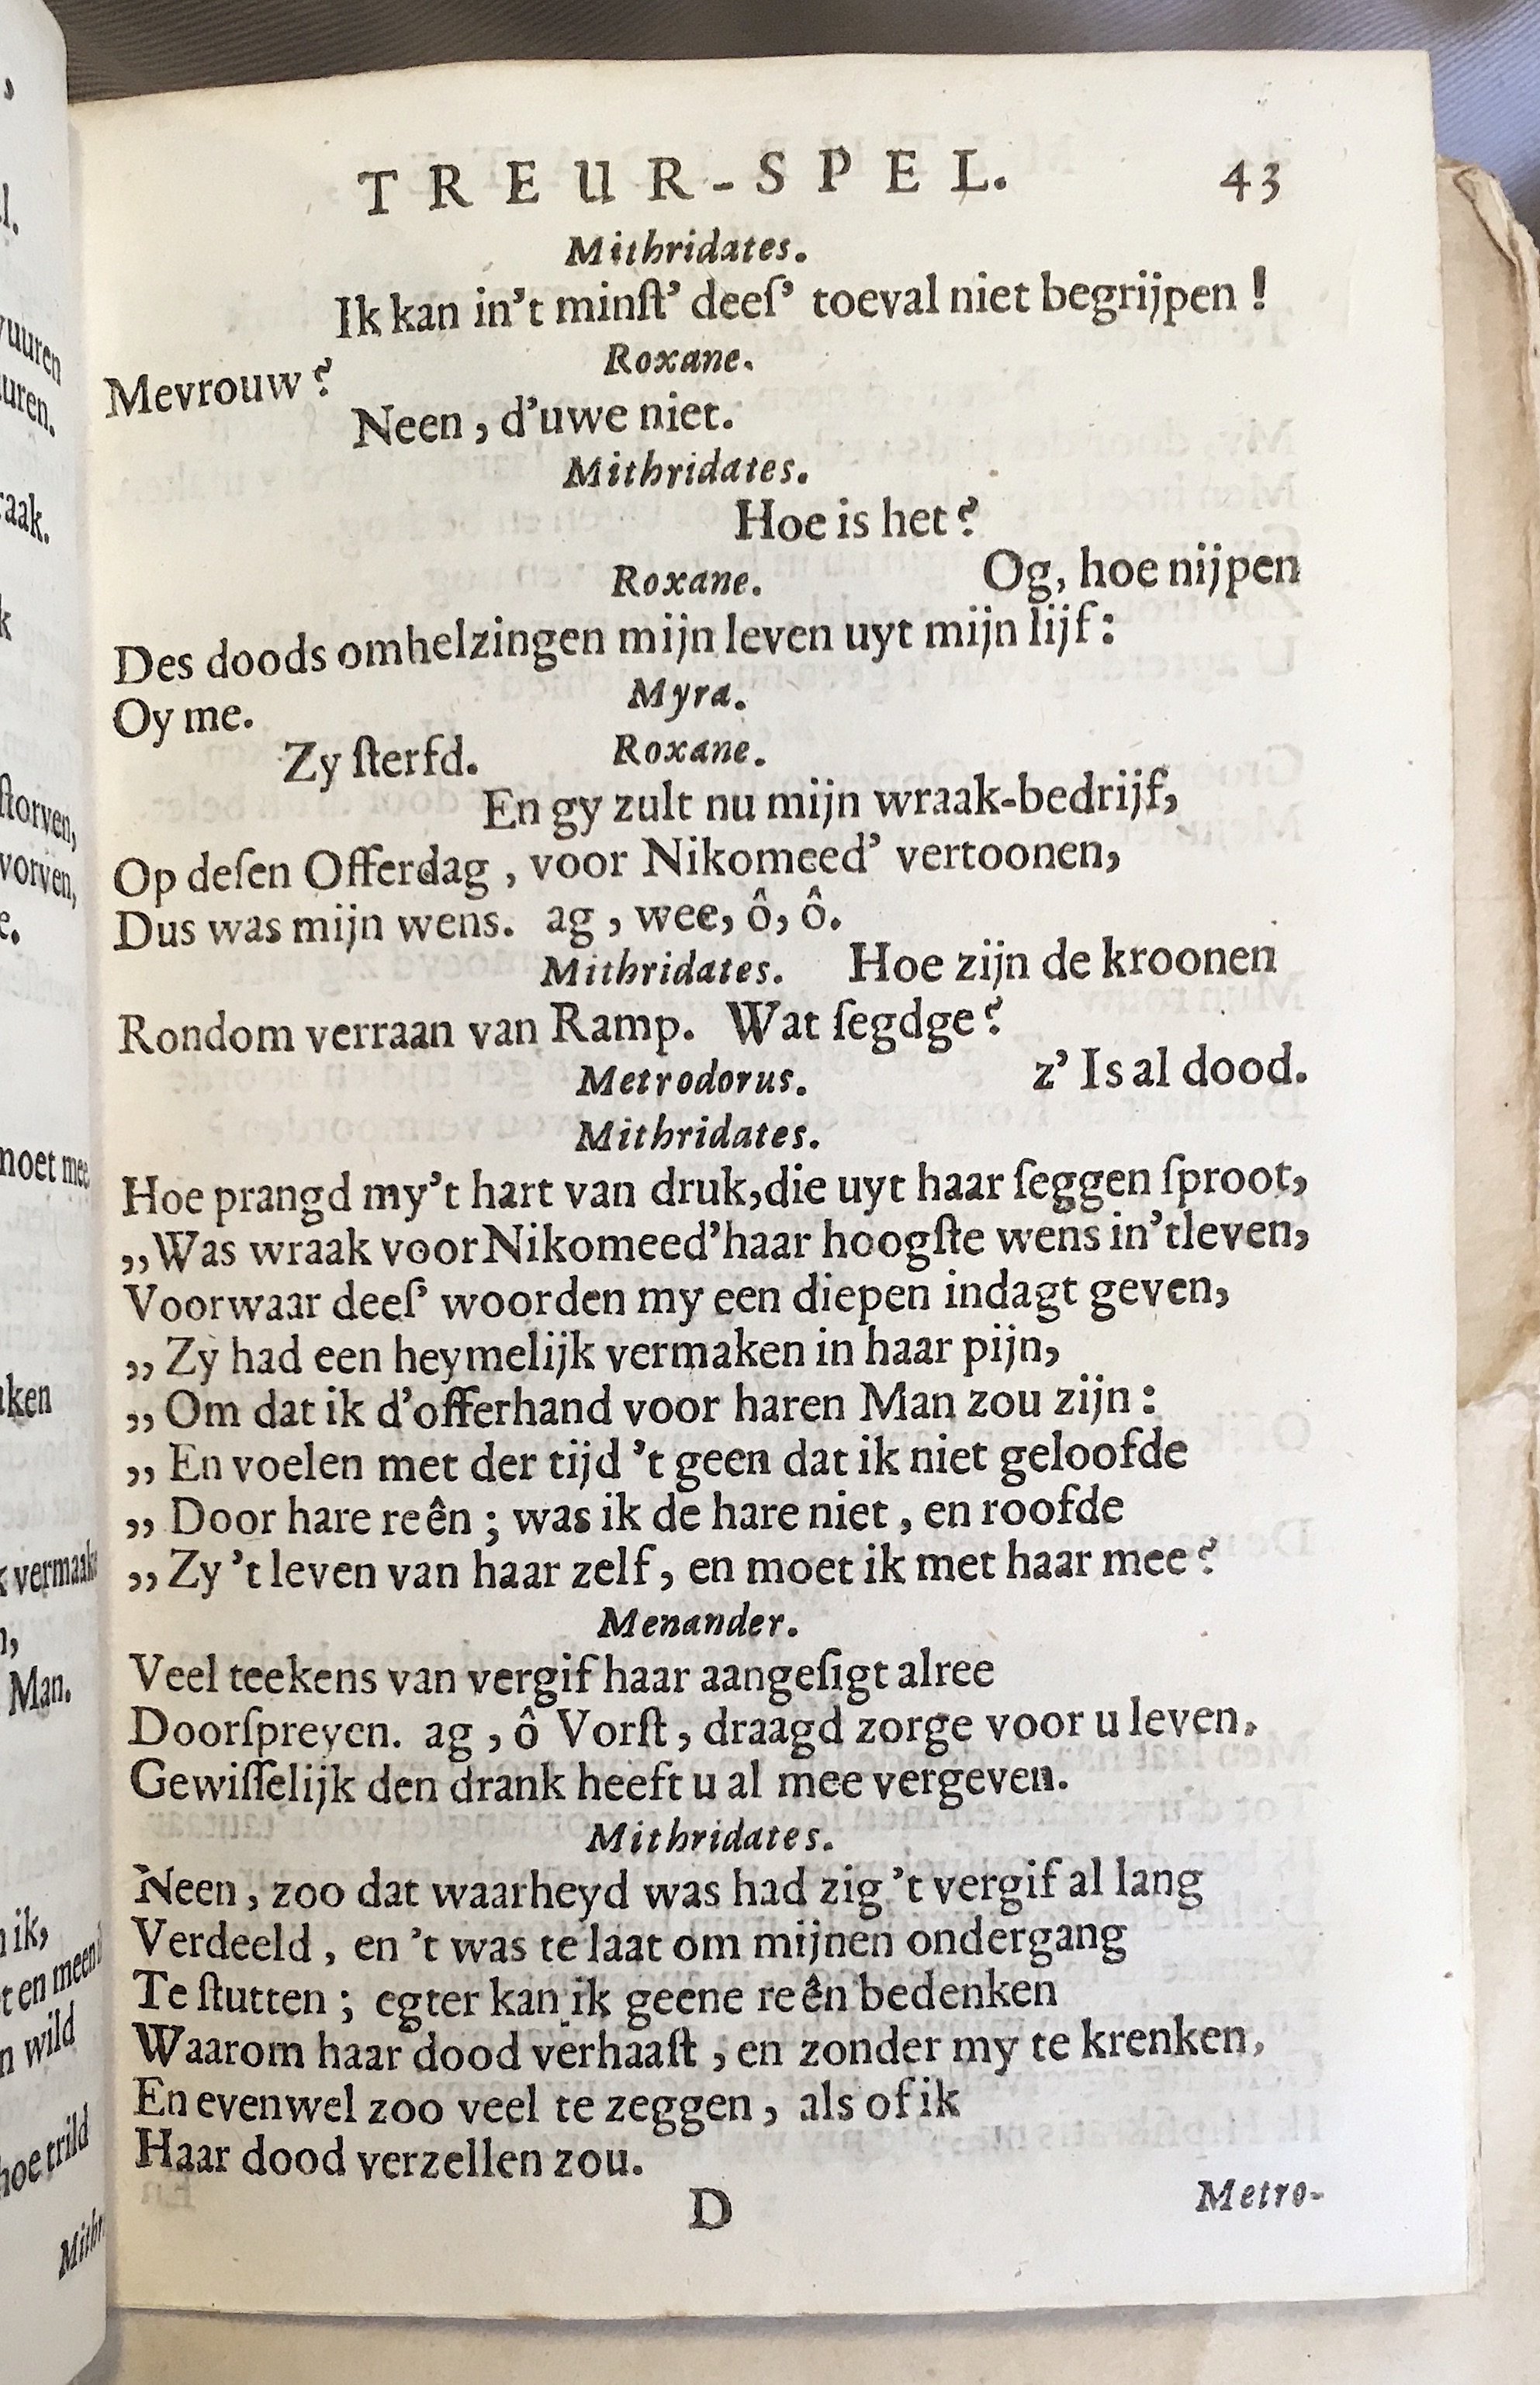 TREUR-SPEL. 43
Mithridates.
Ik kan in’t minſt’ deeſ’ toeval niet begrijpen!
Roxane.
Mevrouw?
Neen, d’uwe niet.
Mithridates.
Hoe is het?
Roxane. Og, hoe nijpen
Des doods omhelzingen mijn leven uyt mijn lijf:
Myra.
Oy me.
Zy ſterfd. Roxane.
En gy zult nu mijn wraak-bedrijf,
Op deſen Offerdag, voor Nikomeed’ vertoonen,
Dus was mijn wens. ag, wee, ô, ô.
Mithridates. Hoe zijn de kroonen
Rondom verraan van Ramp. Wat ſegdge?
Metrodorus. z’ Is al dood.
Mithridates.
Hoe prangd my’t hart van druk, die uyt haar ſeggen ſproot,
„Was wraak voor Nikomeed’ haar hoogſte wens in’t leven,
Voorwaar deeſ’ woorden my een diepen indagt geven,
„Zy had een heymelijk vermaken in haar pijn,
„Om dat ik d’offerhand voor haren Man zou zijn:
„En voelen met der tijd ’t geen dat ik niet geloofde
„Door hare reên; was ik de hare niet, en roofde
„Zy ’t leven van haar zelf, en moet ik met haar mee?
Menander.
Veel teekens van vergif haar aangeſigt alree
Doorſpreyen. ag, ô Vorſt, draagd zorge voor u leven.
Gewiſſelijk den drank heeft u al mee vergeven.
Mithridates.
Neen, zoo dat waarheyd was had zig ’t vergif al lang
Verdeeld, en ’t was te laat om mijnen ondergang
Te ſtutten; egter kan ik geene reên bedenken
Waarom haar dood verhaaſt, en zonder my te krenken,
En evenwel zoo veel te zeggen, als of ik
Haar dood verzellen zou.
D Metro-